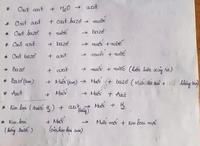 * Oxit axit + H₂O → axit
* Oxit axit + oxit bazơ → muối
* Oxit bazơ + nước → bazơ
* Oxit axit + bazơ → muối + nước
* Oxit bazơ + axit → muối + nước
* bazơ + axit → muối + nước (luôn luôn xảy ra)
* Bazơ (tan) + Muối (tan) → Muối + bazơ (Muối
* Axit + Muối → Muối + Axit
* Kim loại (trước H₂) + axit → Muối + H₂
* Kim loại + Muối → Muối mới + Kim loại mới